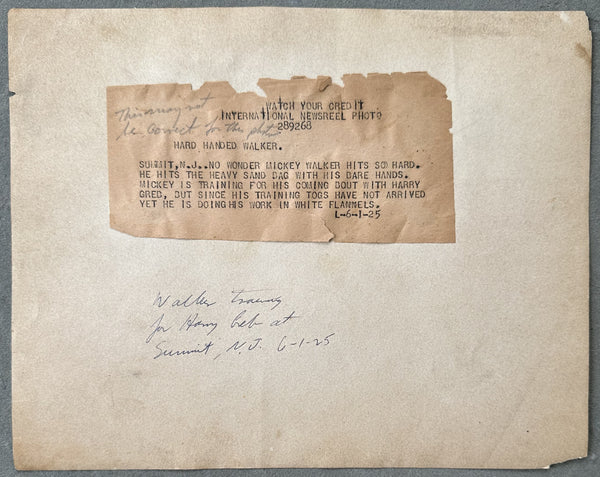 This may not
be correct for this photo
WATCH YOUR CREDIT
INTERNATIONAL NEWSREEL PHOTO
289268
HARD HANDED WALKER.
SUMMIT,N.J..NO WONDER MICKEY WALKER HITS SO HARD.
HE HITS THE HEAVY SAND BAG WITH HIS BARE HANDS.
MICKEY IS TRAINING FOR HIS COMING BOUT WITH HARRY
GREB, BUT SINCE HIS TRAINING TOGS HAVE NOT ARRIVED
YET HE IS DOING HIS WORK IN WHITE FLANNELS.
L-6-1-25
Walker training
for Harry Greb at
Summit, N.J. 6-1-25